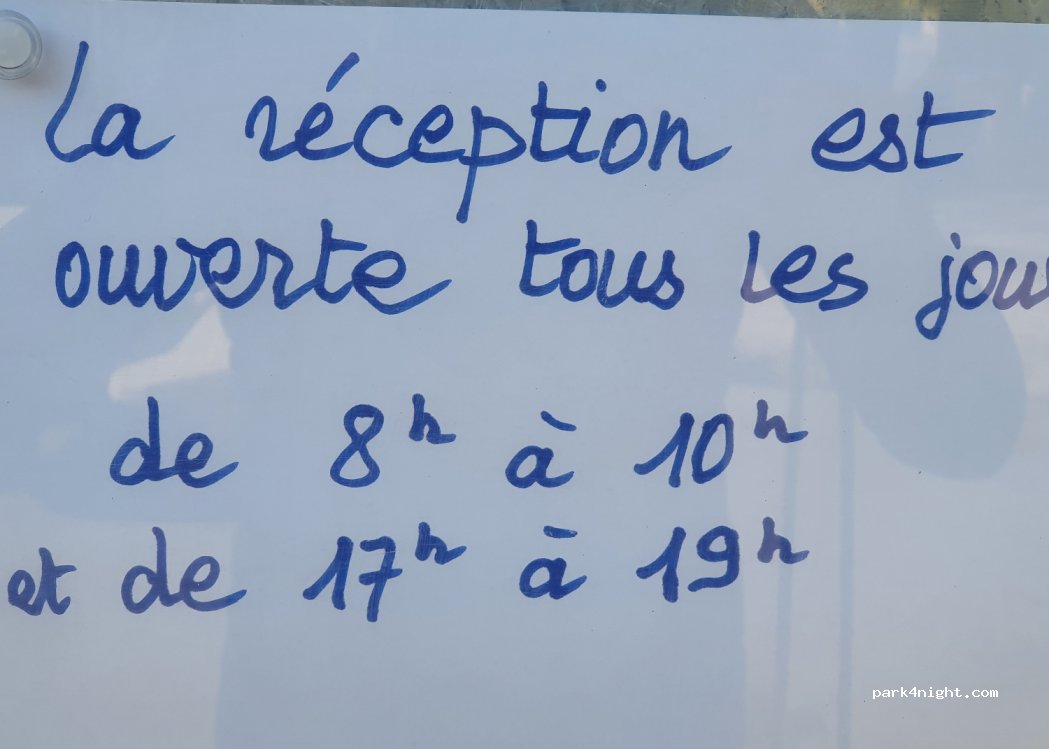 La réception est
ouverte tous les jou
de 8h à 10h
et de 17h à 19h
park4night.com